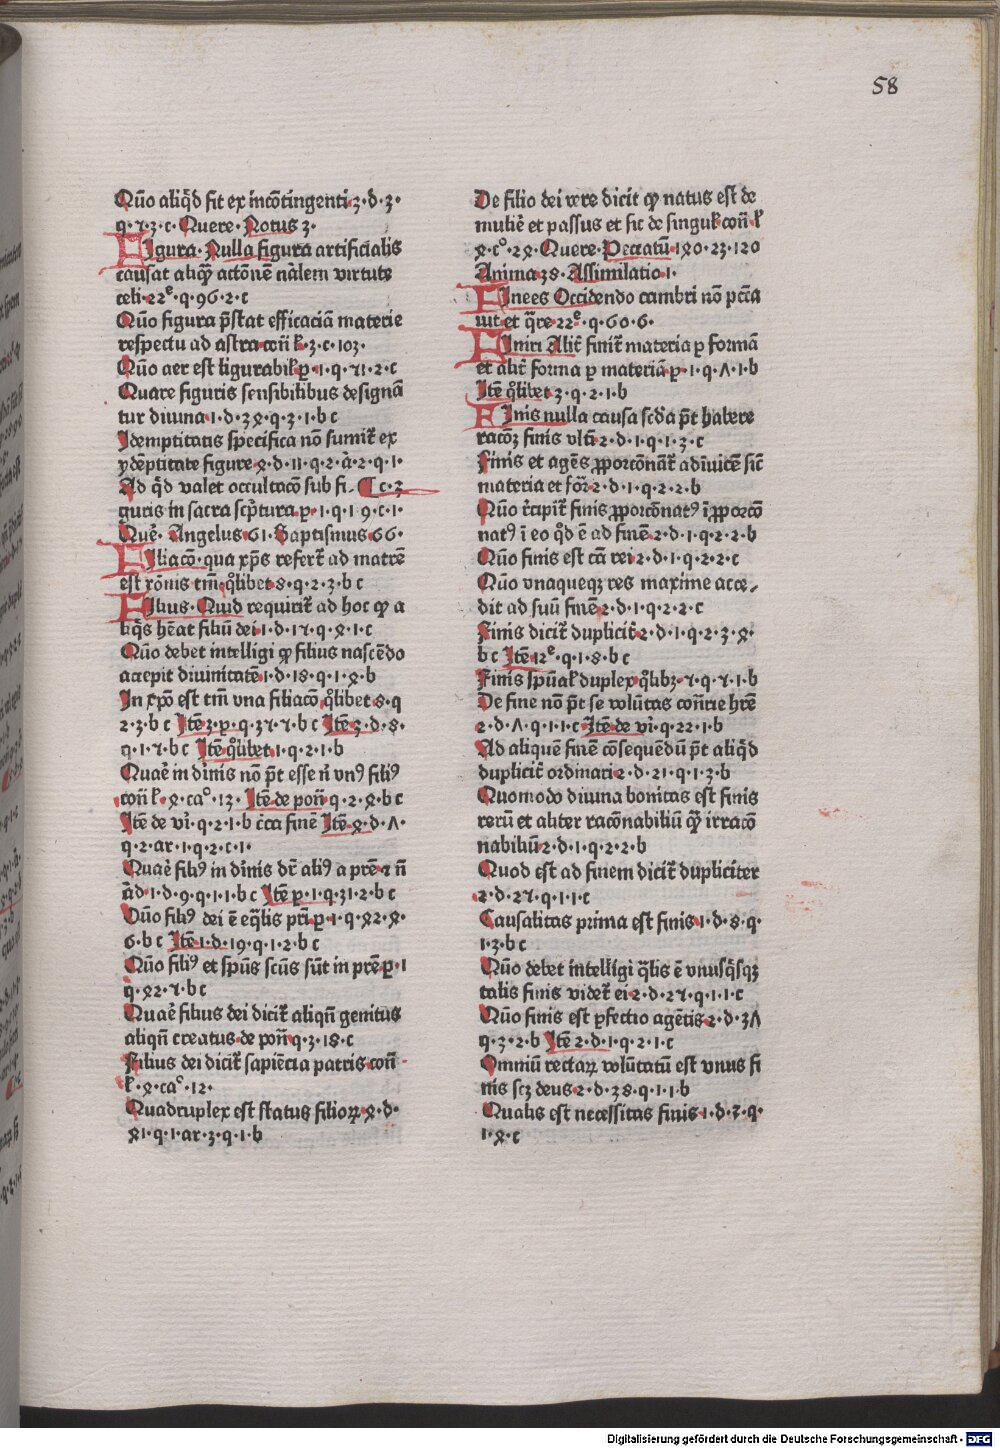 58
Quō aliq̄d fit ex incōtingenti·3·d·3·
q·7·3·c· Quere· Notus 3·
Figura· Nulla figura artificialis
causat aliquā actōnē nālem virtute
celi·22ᵉ·q·96·2·c
Quō figura p̄stat efficaciā materie
respectu ad astra con̄ ł·3·c·103·
Quō aer est figurabił p·1·q·71·2·c
Quare figuris sensibilibus designā
tur diuina·1·d·38·q·3·1·b c
Idemptitatis specifica nō sumit̄ ex
ydēptitate figure·8·d·11·q·2·a·2·q·1·
Ad q̄d valet occultacō sub fi· c·3
guris in sacra scp̄tura·p·1·q·19·c·1·
Que᷑· Angelus 61· Baptismus 66·
Filiacō· qua xp̄s refert̄ ad matrē
est rōnis tm̄·q̊libet·8·q·2·3·b c
Filius· Quid requirit̄ ad hoc ꝙ a
liq̄s hēat filiū dei·1·d·17·q·8·1·c
Quō debet intelligi ꝙ filius nascēdo
accepit diuinitatē·1·d·18·q·1·8·b
In xp̄o est tm̄ vna filiacō·q̊libet·8·q
2·3·b c Itē 3·p·q·37·7·b c Itē 3·d·8·
q·1·7·b c Itē q̊libet·1·q·2·1·b
Quae᷑ in diuīs nō p̄t esse n̄ vnꝰ filiꝰ
con̄ ł·8·caº·13· Itē de pon̄·q·2·8·b c
Itē de vi᷑·q·2·1·b c̄ca finē Itē 8·d·Λ·
q·2·ar·1·q·2·c·1·
Quae᷑ filiꝰ in diuīs dr̄ aliꝰ a prē ⁊ n̄
ad·1·d·9·q·1·1·b c Itē p·1·q·31·2·b c
Quō filiꝰ dei ē eq̄lis pri᷑·p·1·q·82·8·
6·b c Itē 1·d·19·q·1·2·b c
Quō filiꝰ et spūs scūs sūt in prē·p·1
q·82·7·b c
Quae᷑ filius dei dicit̄ aliqn̄ genitus
aliqn̄ creatus·de pon̄·q·3·18·c
Filius dei dicit̄ sapiēcia patris con̄·
ł·8·caº·12·
Quadruplex est status filioꝝ·8·d·
81·q·1·ar·3·q·1·b
De filio dei vere dicit ꝙ natus est de
muliē et passus et sic de singuł·con̄ ł
8·cº·28· Quere· Peccatū 180·23·120
Anima 38· Assimilatio 1·
Finees Occidendo cambri nō pcc̄a
uit et q̄re 22ᵉ·q·60·6·
Finiri Alit̄ finit̄ materia p formā
et alit̄ forma p materiā·p·1·q·Λ·1·b
Itē q̊libet·3·q·2·1·b
Finis nulla causa scd̄a p̄t habere
racōꝫ finis vlti·2·d·1·q·1·3·c
Finis et agēs ꝓporcōnāt̄ adiuicē sic̄
materia et for᷑·2·d·1·q·2·2·b
Quō r̄cipit̄ finis ꝓporcōnatꝰ i᷑ ꝓporcō
natꝰ i᷑ eo q̊d ē ad finē·2·d·1·q·2·2·b
Quō finis est cā rei·2·d·1·q·2·2·c
Quō vnaqueqꝫ res maxime acce⸗
dit ad suū finē·2·d·1·q·2·2·c
Finis dicit̄ duplicit̄·2·d·1·q·2·3·8·
b c Itē 12ᵉ·q·1·8·b c
Finis spūał duplex·q̊libꝫ·7·q·7·1·b
De fine nō p̄t se volūtas cōn̄rie hrē
2·d·Λ·q·1·1·c Itē de vi᷑·q·22·1·b
Ad aliquē finē cōsequēdū p̄t aliq̄d
duplicit̄ ordinari·2·d·21·q·1·3·b
Quomodo diuina bonitas est finis
rerū et aliter racōnabiliū q̄ꝫ irracō
nabiliū·2·d·1·q·2·2·b
Quod est ad finem dicit̄ dupliciter
2·d·27·q·1·1·c
Causalitas prima est finis·1·d·8·q·
1·3·b c
Quō debet intelligi q̄lis ē vnusq̄sqꝫ
talis finis videt̄ ei·2·d·27·q·1·1·c
Quō finis est pfectio agētis·2·d·3Λ
q·3·2·b Itē 2·d·1·q·2·1·c
Omniū rectaꝝ volūtatū est vnus fi
nis scꝫ deus·2·d·38·q·1·1·b
Qualis est necessitas finis·1·d·7·q·
1·8·c
Digitalisierung gefördert durch die Deutsche Forschungsgemeinschaft - DFG